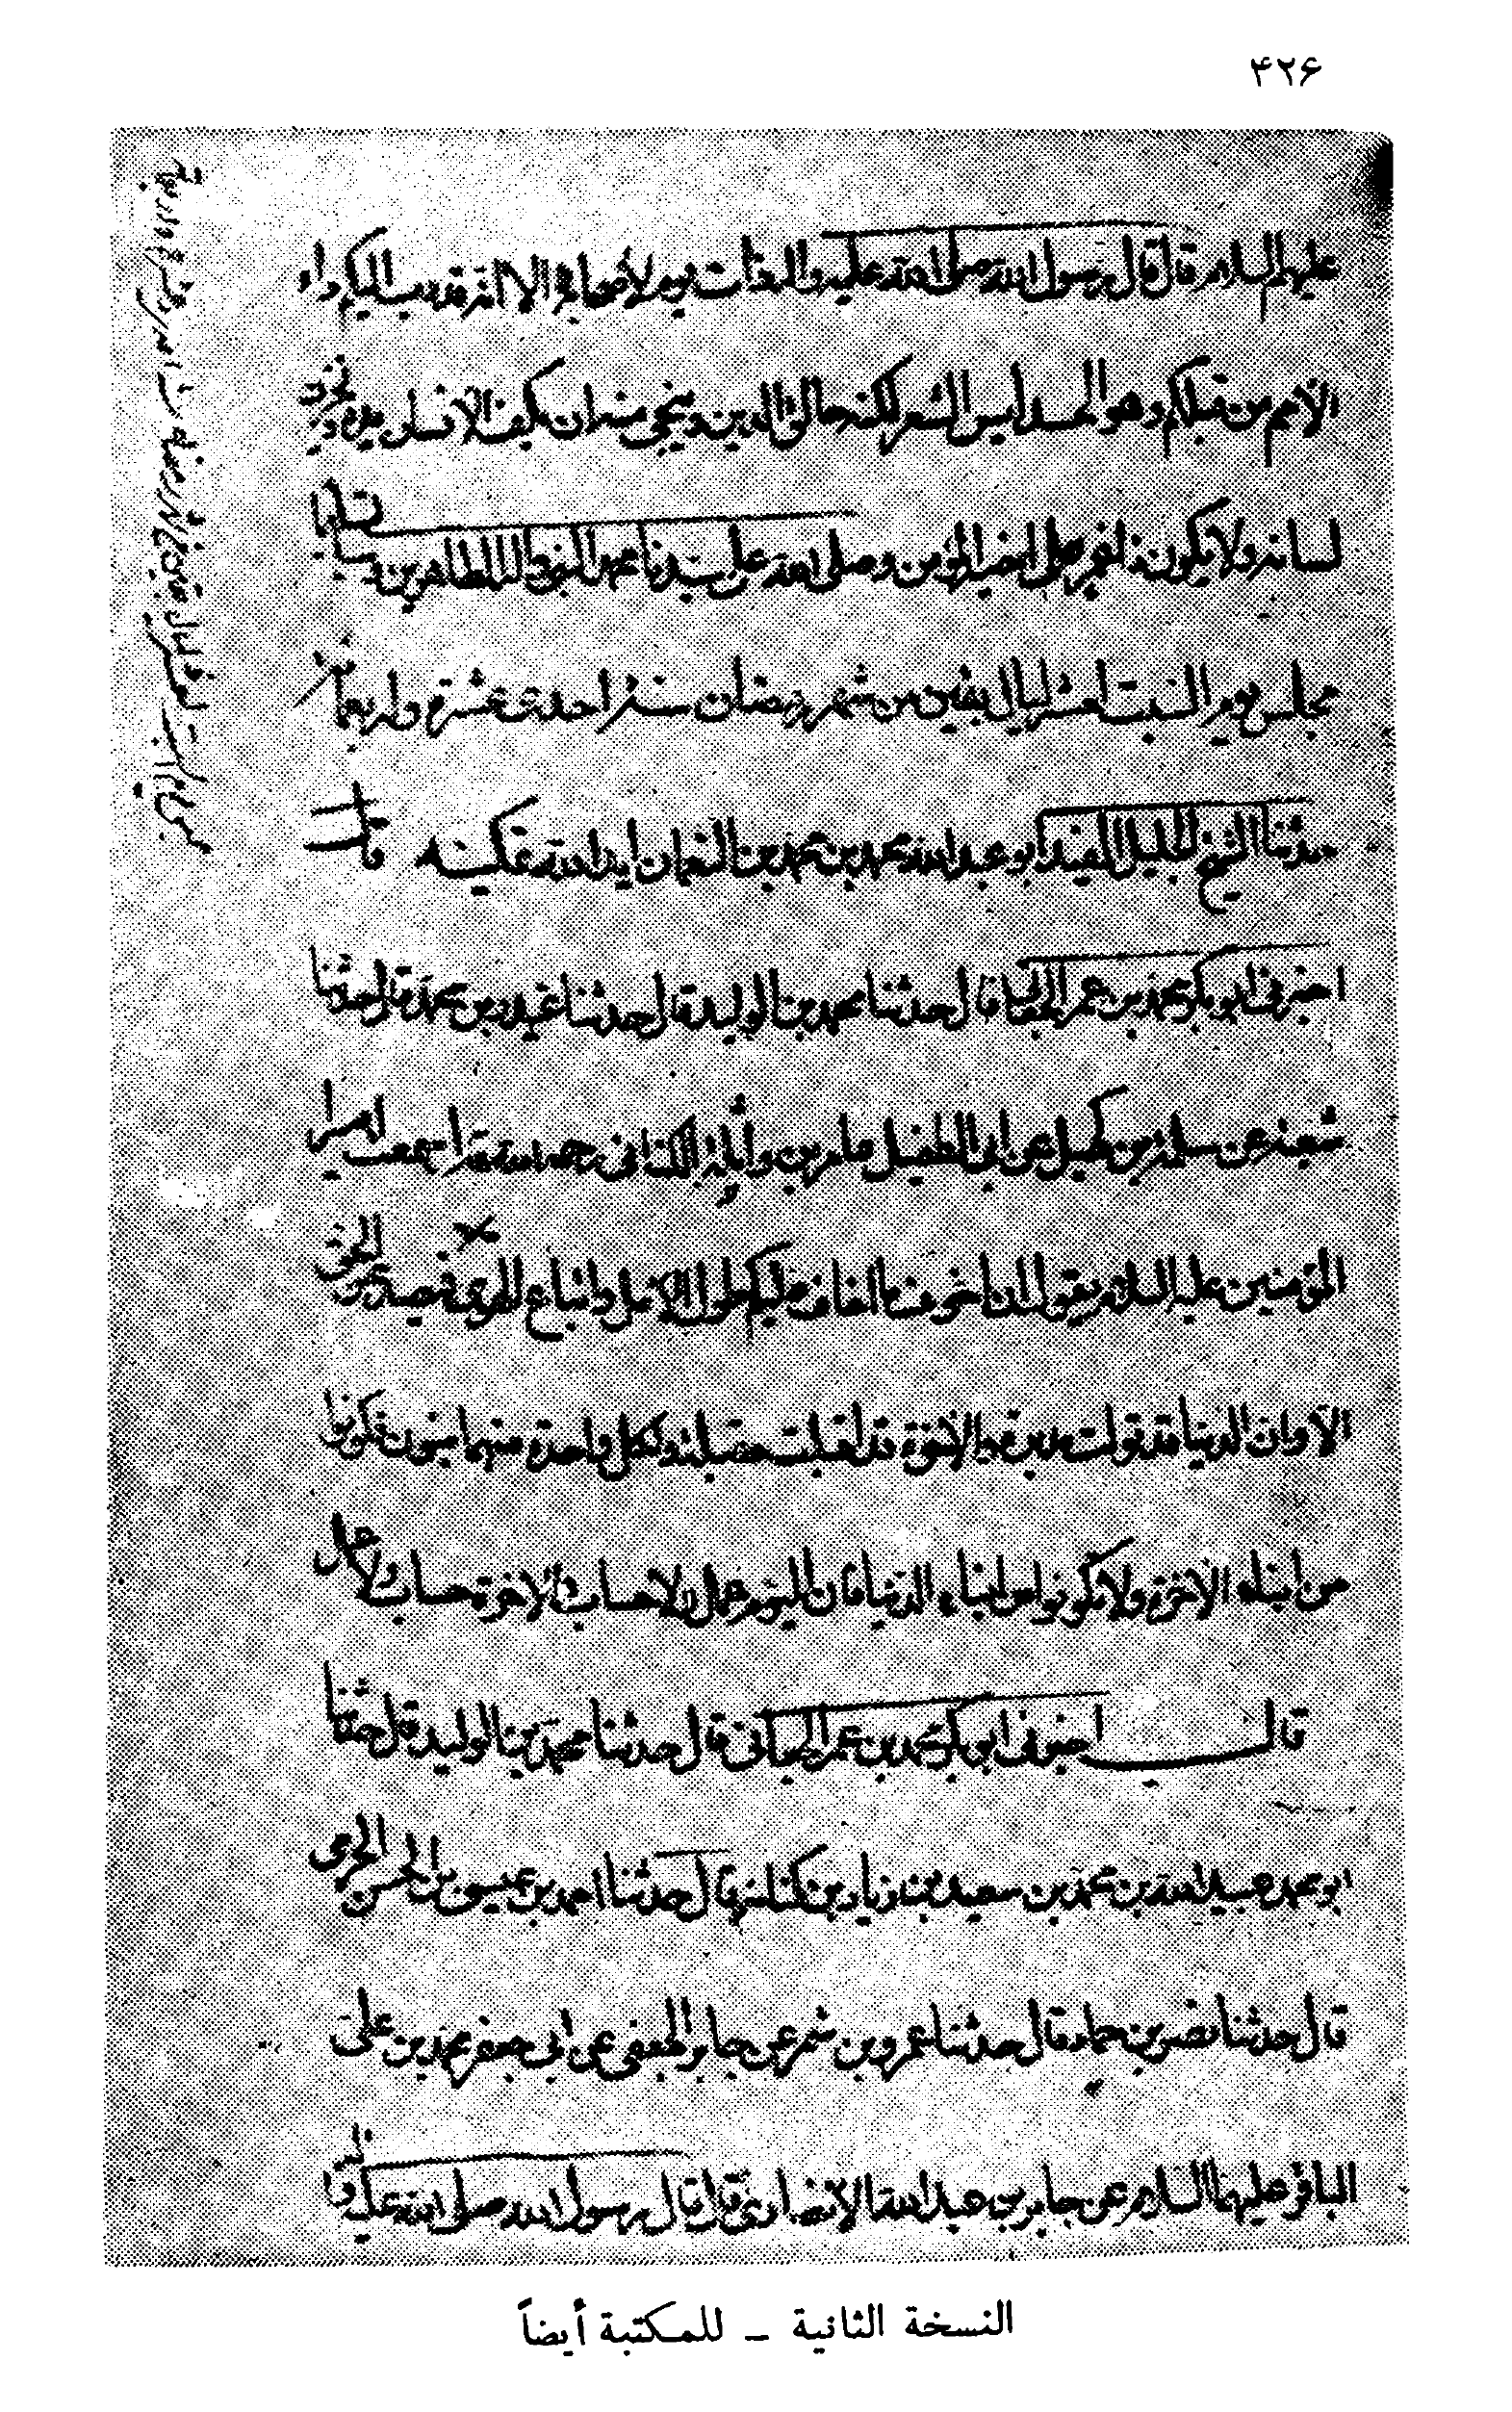 ۴۲۶
عليهم السلام قال قال رسول الله صلى الله عليه وآله ذات يوم لأصحابه ألا انه قد دب اليكم داء
الأمم من قبلكم وهو الحسد ليس الشعر لكنه حالق الدين وينجى منه ان يكف الانسان يده ويخزن
لسانه ولا يكون ذا غمر على اخيه المؤمن وصلى الله على سيدنا محمد النبي وآله الطاهرين وسلم تسليما
مجلس يوم السبت لعشر ليال بقين من شهر رمضان سنة احدى عشرة واربعمائة
حدثنا الشيخ الجليل المفيد ابو عبد الله محمد بن محمد بن النعمان ايد الله تمكينه قال
اخبرنى ابو بكر محمد بن عمر الجعابى قال حدثنا محمد بن الوليد قال حدثنا عنبر بن محمد قال حدثنا
شعبة عن سلمة بن كهيل عن ابى الطفيل عامر بن واثلة الكنانى رحمه الله قال سمعت امير
المؤمنين عليه السلام يقول ان اخوف ما اخاف عليكم طول الامل واتباع الهوى فيصد عن الحق
الا وان الدنيا قد تولت مدبرة والآخرة قد اقبلت مقبلة ولكل واحدة منهما بنون فكونوا
من ابناء الآخرة ولا تكونوا من ابناء الدنيا فان اليوم عمل ولا حساب والآخرة حساب ولا عمل
قال اخبرنى ابو بكر محمد بن عمر الجعابى قال حدثنا محمد بن الوليد قال حدثنا
ابو محمد عبد الله بن محمد بن سعيد بن زياد بن كنانة قال حدثنا احمد بن عيسى بن الحسن الجرمى
قال حدثنا نصر بن حماد قال حدثنا عمرو بن شمر عن جابر الجعفى عن ابى جعفر محمد بن على
الباقر عليهما السلام عن جابر بن عبد الله الانصارى قال قال رسول الله صلى الله عليه وآله
النسخة الثانية ـ للمكتبة أيضاً